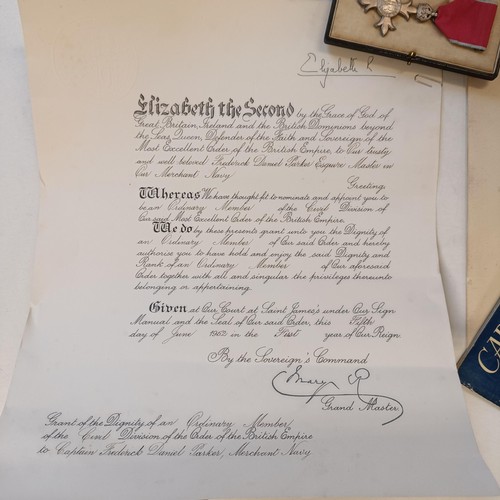 Elizabeth R
Elizabeth the Second by the Grace of God of
Great Britain, Ireland and the British Dominions beyond
the Seas Queen, Defender of the Faith and Sovereign of the
Most Excellent Order of the British Empire, to Our trusty
and well beloved Frederick Daniel Parker Esquire Master in
Our Merchant Navy
Greeting
Whereas We have thought fit to nominate and appoint you to
be an Ordinary Member of the Civil Division of
Our said Most Excellent Order of the British Empire.
We do by these presents grant unto you the Dignity of
an Ordinary Member of Our said Order and hereby
authorise you to have hold and enjoy the said Dignity and
Rank of an Ordinary Member of Our aforesaid
Order together with all and singular the privileges thereunto
belonging or appertaining.
Given at Our Court at Saint James's under Our Sign
Manual and the Seal of Our said Order, this Fifth
day of June 1952 in the First year of Our Reign.
By the Sovereign's Command
Mary R
Grand Master
Grant of the Dignity of an Ordinary Member
of the Civil Division of the Order of the British Empire
to Captain Frederick Daniel Parker, Merchant Navy